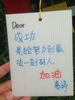 Dear
成功
是給努力到最
後一刻的人
加油